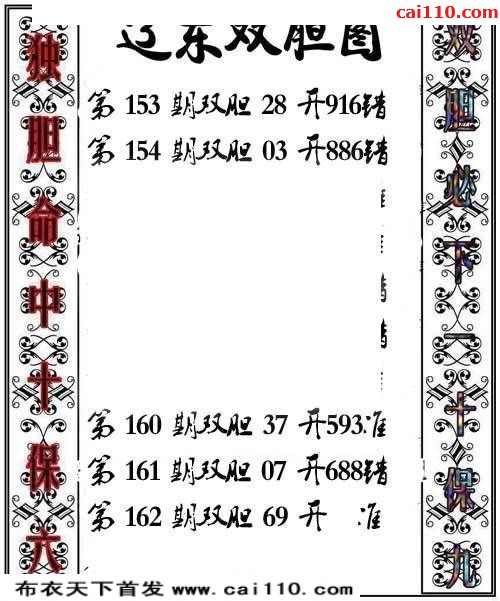 cai110.com
辽东双胆图
独胆命中十保六
第 153 期双胆 28 开916错
第 154 期双胆 03 开886错
第 160 期双胆 37 开593准
第 161 期双胆 07 开688错
第 162 期双胆 69 开 准
双胆必下一十保九
布衣天下首发 www.cai110.com